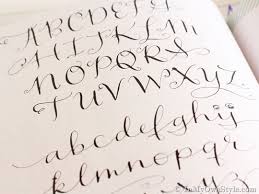 ABCDEFG
HIJKLM
NOPQRS
TUVWXYZ
abcdefghij
klmnopqr
© InMyOwnStyle.com